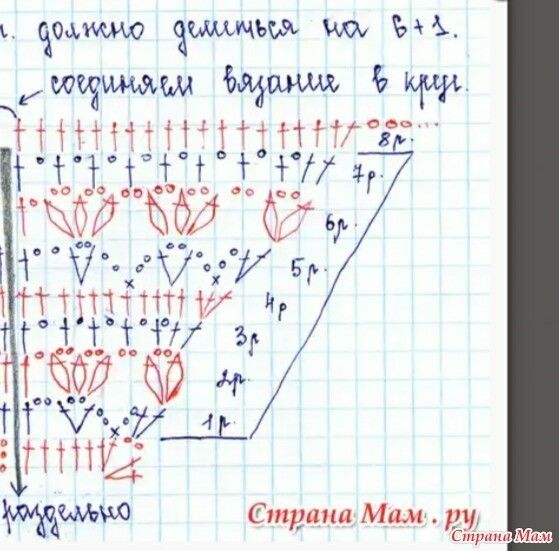 т. должно делиться на 6+1.
соединяем вязание в круг.
8р.
7р.
6р.
5р.
4р
3р
2р.
1р.
раздельно
Страна Мам . ру
Страна Мам